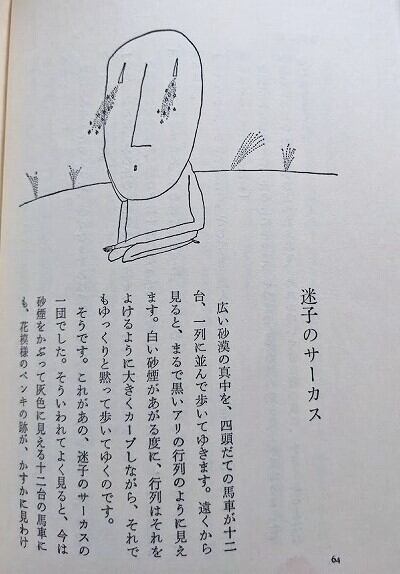 迷子のサーカス
広い砂漠の真中を、四頭だての馬車が十二
台、一列に並んで歩いてゆきます。遠くから
見ると、まるで黒いアリの行列のように見え
ます。白い砂煙があがる度に、行列はそれを
よけるように大きくカーブしながら、それで
もゆっくりと黙って歩いてゆくのです。
そうです。これがあの、迷子のサーカスの
一団でした。そういわれてよく見ると、今は
砂煙をかぶって灰色に見える十二台の馬車に
も、花模様のペンキの跡が、かすかに見わけ
64